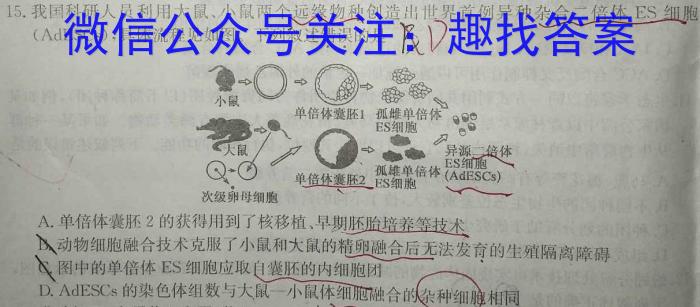 15.我国科研人员利用大鼠、小鼠两个远缘物种创造出世界首例异种杂合二倍体 ES 细胞
(AdESCs),
微信公众号关注: 趣找答案
小鼠
单倍体囊胚1
孤雌单倍体
ES细胞
大鼠
次级卵母细胞
单倍体囊胚2
孤雄单倍体
ES细胞
异源二倍体
ES细胞
(AdESCs)
A. 单倍体囊胚 2 的获得用到了核移植、早期胚胎培养等技术
B. 动物细胞融合技术克服了小鼠和大鼠的精卵融合后无法发育的生殖隔离障碍
C. 图中的单倍体 ES 细胞应取自囊胚的内细胞团
D. AdESCs 的染色体组数与大鼠—小鼠体细胞融合的杂种细胞相同